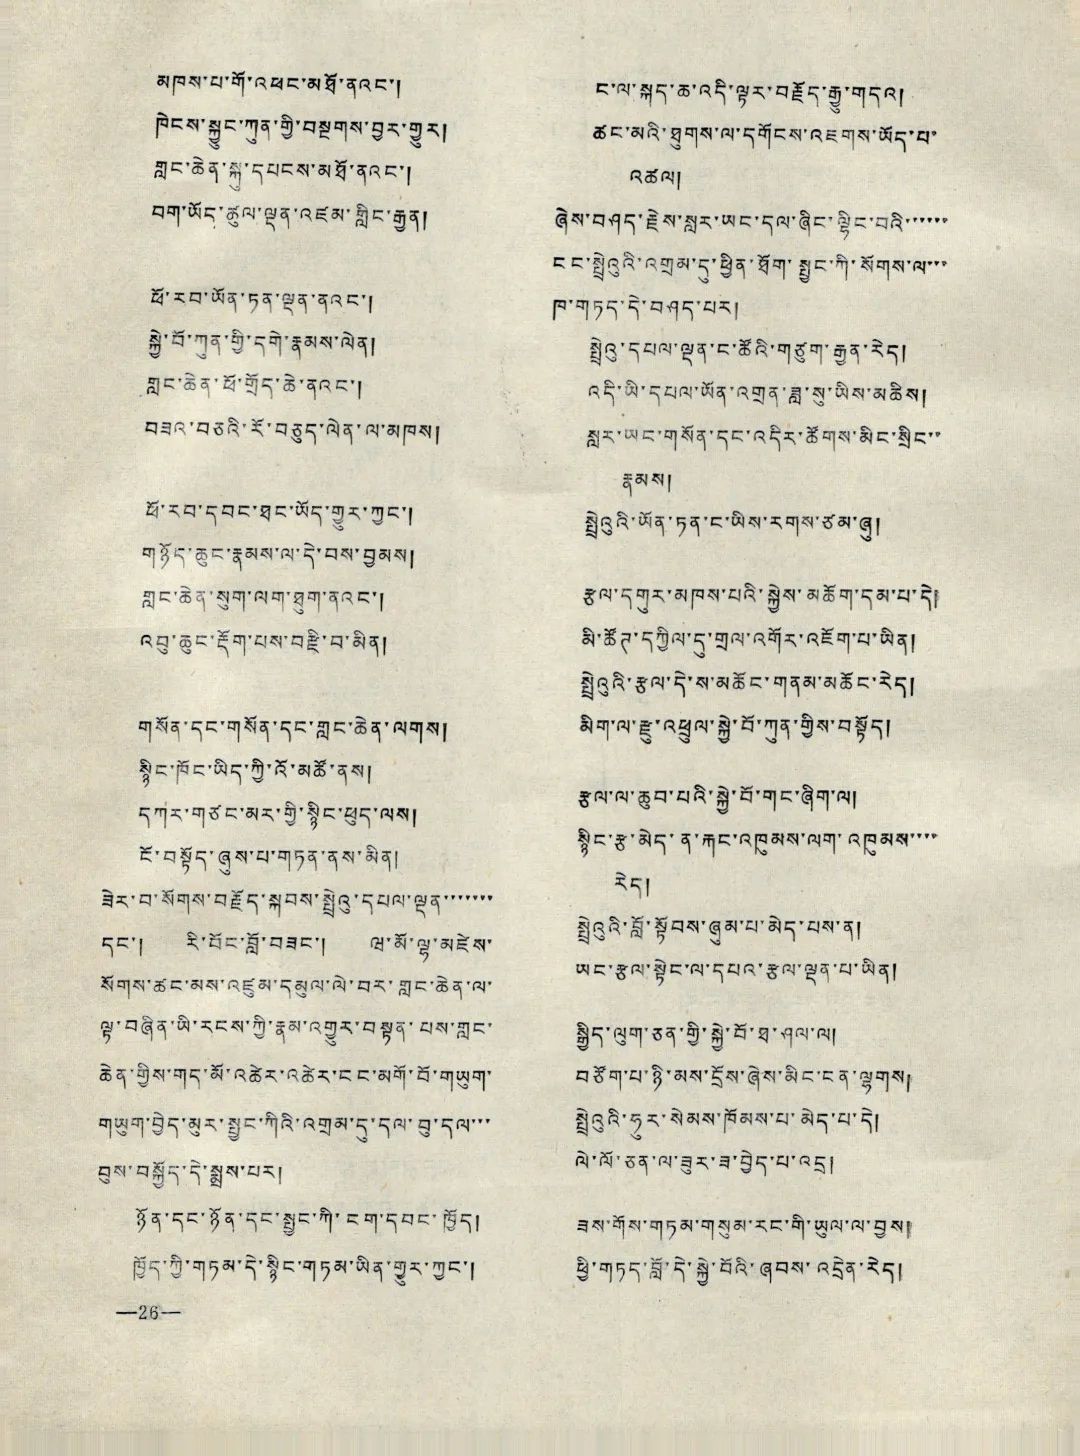 མཁས་པ་གོ་འཕང་མཐོ་ནའང་།
ཁེངས་སྐྱུང་ཀུན་གྱི་བསྔགས་བྱར་གྱུར།
གླང་ཆེན་སྐུ་དཔངས་མཐོ་ནའང་།
བག་ཡོད་ཚུལ་ལྡན་འཛམ་གླིང་རྒྱན།
ཕོ་རབ་ཡོན་ཏན་ལྡན་ནའང་།
སྐྱེ་བོ་ཀུན་གྱི་དགེ་རྣམས་ལེན།
གླང་ཆེན་ཕོ་གྲོད་ཆེ་ནའང་།
བཟའ་བཅའི་རོ་བཅུད་ལེན་ལ་མཁས།
ཕོ་རབ་དབང་ཐང་ཡོད་གྱུར་ཀྱང་།
གཉོད་ཆུང་རྣམས་ལ་དེ་བས་བྱམས།
གླང་ཆེན་སུག་ལག་ཐུག་ནའང་།
འབུ་ཆུང་རྡོག་པས་བརྫི་བ་མིན།
གསོན་དང་གསོན་དང་གླང་ཆེན་ལགས།
སྙིང་ཁོང་ཡིད་ཀྱི་འོ་མཚོ་ནས།
དཀར་གཙང་མར་གྱི་སྙིང་ཕུད་ལས།
ངོ་བསྟོད་ཞུས་པ་གཏན་ནས་མིན།
ཟེར་བ་སོགས་བརྗོད་སྐབས་སྤྲེའུ་དཔལ་ལྡན་······
དང་། རི་བོང་བློ་བཟང་། ཝ་མོ་ལྷ་མཛེས་
སོགས་ཚང་མས་འཛུམ་དམུལ་ལེ་བར་གླང་ཆེན་ལ་
ལྟ་བཞིན་ཡི་རངས་ཀྱི་རྣམ་འགྱུར་བསྟན་པས་གླང་
ཆེན་གྱིས་གད་མོ་འཚེར་འཚེར་ངང་མགོ་བོ་གཡུག་
གཡུག་བྱེད་མུར་སྤྱང་ཀིའི་འགྲམ་དུ་དལ་བུ་དལ་···
བུས་བསྐྱོད་དེ་སྨྲས་པར།
ཉོན་དང་ཉོན་དང་སྤྱང་ཀི་ངག་དབང་ཁྱོད།
ཁྱོད་ཀྱི་གཏམ་དེ་སྙིང་གཏམ་ཡིན་གྱུར་ཀྱང་།
—26—
ང་ལ་སྐད་ཆ་འདི་ལྟར་བརྗོད་རྒྱུ་གདའ།
ཚང་མའི་ཐུགས་ལ་དགོངས་འཇགས་ཡོད་པ་
འཚལ།
ཞེས་བཤད་རྗེས་སླར་ཡང་དལ་ཞིང་ལྷིང་བའི······
ངང་སྤྲེའུའི་འགྲམ་དུ་ཕྱིན་ཐོག་སྤྱང་ཀི་སོགས་ལ···
ཁ་གཏད་དེ་བཤད་པར།
སྤྲེའུ་དཔལ་ལྡན་ང་ཚོའི་གཙུག་རྒྱན་རེད།
འདི་ཡི་དཔལ་ཡོན་འགྲན་ཟླ་སུ་ཡིས་མཆིས།
སླར་ཡང་གསོན་དང་འདིར་ཚོགས་མིང་སྲིང་
རྣམས།
སྤྲེའུའི་ཡོན་ཏན་ང་ཡིས་རགས་ཙམ་ཞུ།
རྩལ་དགུར་མཁས་པའི་སྐྱེས་མཆོག་དམ་པ་དེ།
མི་ཚོཌ་དཀྱིལ་དུ་གྲལ་འགོར་འཇོག་པ་ཡིན།
སྤྲེའུའི་རྩལ་དེ་ས་མཆོང་གནམ་མཆོང་རེད།
མིག་ལ་རྫུ་འཕྲུལ་སྐྱེ་བོ་ཀུན་གྱིས་བསྟོད།
རྩལ་ལ་ཆུབ་པའི་སྐྱེ་བོ་གང་ཞིག་ལ།
སྙིང་རྩ་མེད་ན་རྐང་འཁུམས་ལག་འཁུམས····
རེད།
སྤྲེའུའི་བློ་སྟོབས་ཞུམ་པ་མེད་པས་ན།
ཡང་རྩལ་སྟེང་ལ་དཔའ་རྩལ་ལྡན་པ་ཡིན།
སྒྱིད་ལུག་ཅན་གྱི་སྐྱེ་བོ་ཐ་ཤལ་ལ།
བཙོག་པ་ཉི་མས་དྲོས་ཞེས་མིང་ངན་ལྷགས།
སྤྲེའུའི་ཧུར་སེམས་ཁོམས་པ་མེད་པ་དེ།
ལེ་ལོ་ཅན་ལ་ཟུར་ཟ་བྱེད་པ་འདྲ།
ཟས་གོས་གཏམ་གསུམ་རང་གི་ཡུལ་ལ་བྱས།
ཕྱི་གཏད་བློ་དེ་སྐྱེ་བོའི་ཞབས་འདྲེན་རེད།